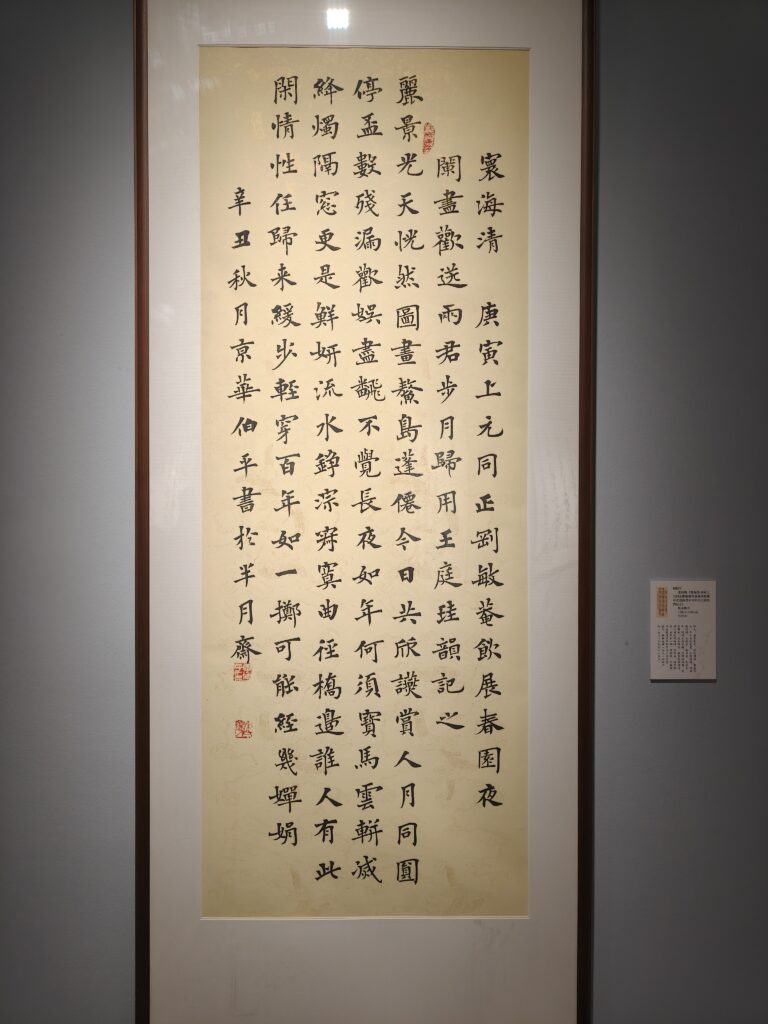 寰海清 庚寅上元同正剛敏菴飲展春園夜
闌畫歡送雨君步月歸用王庭珪韻記之
麗景光天恍然圖畫鰲島蓬僊今日共欣讌賞人月同圓
停盃數殘漏歡娛盡飜不覺長夜如年何須寶馬雲軿滅
絳燭隔窓更是鮮妍流水錚淙寂寞曲徑橋邊誰人有此
閑情性任歸来緩步輕穿百年如一擲可能經幾嬋娟
辛丑秋月京華伯平書於半月齋